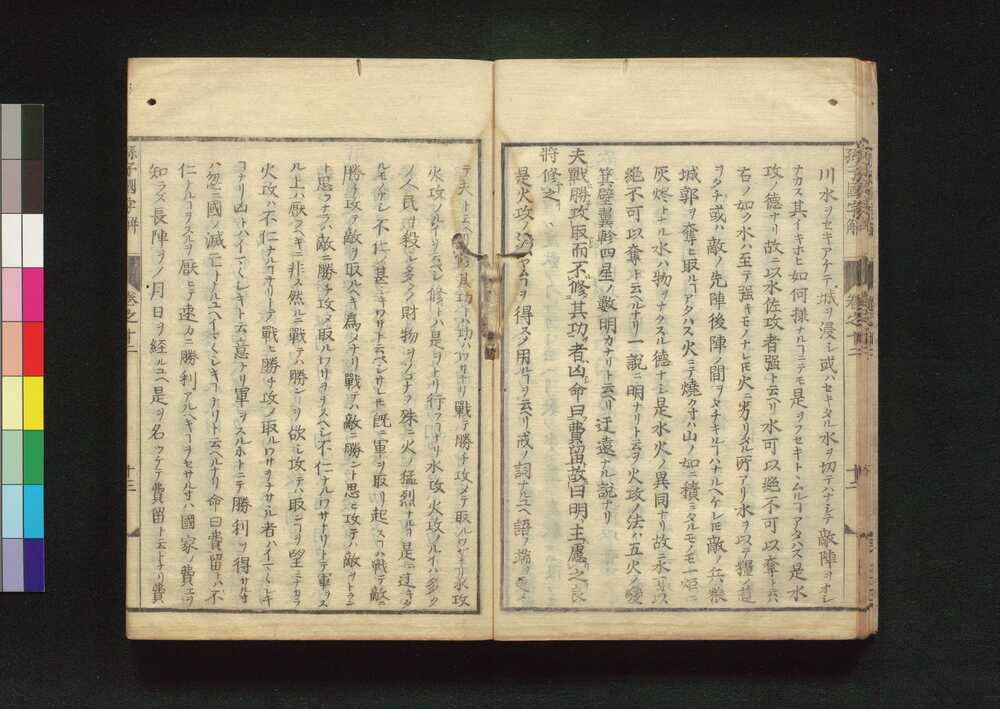 川水ヲセキアケテ城ヲ浸シ或ハセキタル水ヲ切テハナシテ敵陣ヲオシ
ナカス其イキホヒ如何様ナルヿニテモ是ヲフセキトムルヿアタハズ是水
攻ノ德ナリ故ニ以水佐攻者强ト云ヘリ水可以絕不可以奪トハ
右ノ如ク水ハ至テ强キモノナレ𪜈火ニ劣リタル所アリ水ヲ以テ糧ノ道
ヲタチ或ハ敵ノ先陣後陣ノ間ヲタチキルヿハナルヘケレ𪜈敵ノ兵粮
城郭ヲ奪ヒ取ルヿアタハス火ニテ燒クキハ山ノ如ニ積ミタルモノモ一炬ニ
灰燼トナル水ハ物ヲナクスル德ナシ是水火ノ異同ナリ故ニ水可以
絕不可以奪ト云ヘルナリ一說ニ明ナリト云ヲ火攻ノ法ハ五火ノ變
箕壁翼軫四星ノ數明カナリト云ヘリ迂遠ナル說ナリ
夫戰勝攻取而不修其功者凶命曰費留故曰明主慮之良
將修之
是火攻ノ ヿヲ得スノ用ルヿヲ云ヘリ戒ノ詞ナルユヘ語ノ端ヲ
テ夫ト云ヘリ修其功トハ功ハワサナリ戰テ勝チ攻メテ取ルワサナリ水攻
火攻ノルイヲ云ヘシ修トハ是ヲトリ行フヿナリ水攻火攻ノルイハ多ク
ノ人民ヲ殺シ多クノ財物ヲソコナフ殊ニ火ノ猛烈ナルヿ是ニ過キタ
ルモノナシ不仁ノ甚シキワサト云ヘシサレ𪜈旣ニ軍ヲ取リ起スヿハ戰テ敵ニ
勝チ攻テ敵ヲ取ルヘキ爲メナリ戰テハ敵ニ勝ント思ヒ攻テハ敵ヲトラン
ト思フナラハ敵ニ勝チ攻メ取ルワサヲスヘシ不仁ナルワサナリトテ軍ヲス
ル上ハ厭フヘキニ非ス然ルニ戰テハ勝ンヿヲ欲シ攻テハ取ンヿヲ望ミナカラ
火攻ハ不仁ナルヿナリトテ戰ヒ勝チ攻メ取ルワサヲナサヽル者ハイマ〱シキ
ヿナリ凶トハイマ〱シキト云意ナリ軍ヲスルホトニテ勝利ヲ得サルキ
ハ忽ニ國ノ滅亡トナルユヘイマ〱シキヿナリト云ヘルナリ命曰費留トハ不
仁ナルヿヲスルヲ厭ヒテ速カニ勝利アルヘキヿヲセサルキハ國家ノ費エヲ
知ラス長陣ヲノ月日ヲ經ルユヘ是ヲ名ツケテ費留ト云トナリ費
孫子國字解
卷之十二
十三